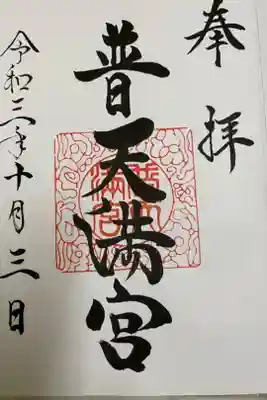 奉拝
普天満宮
令和三年十月三日